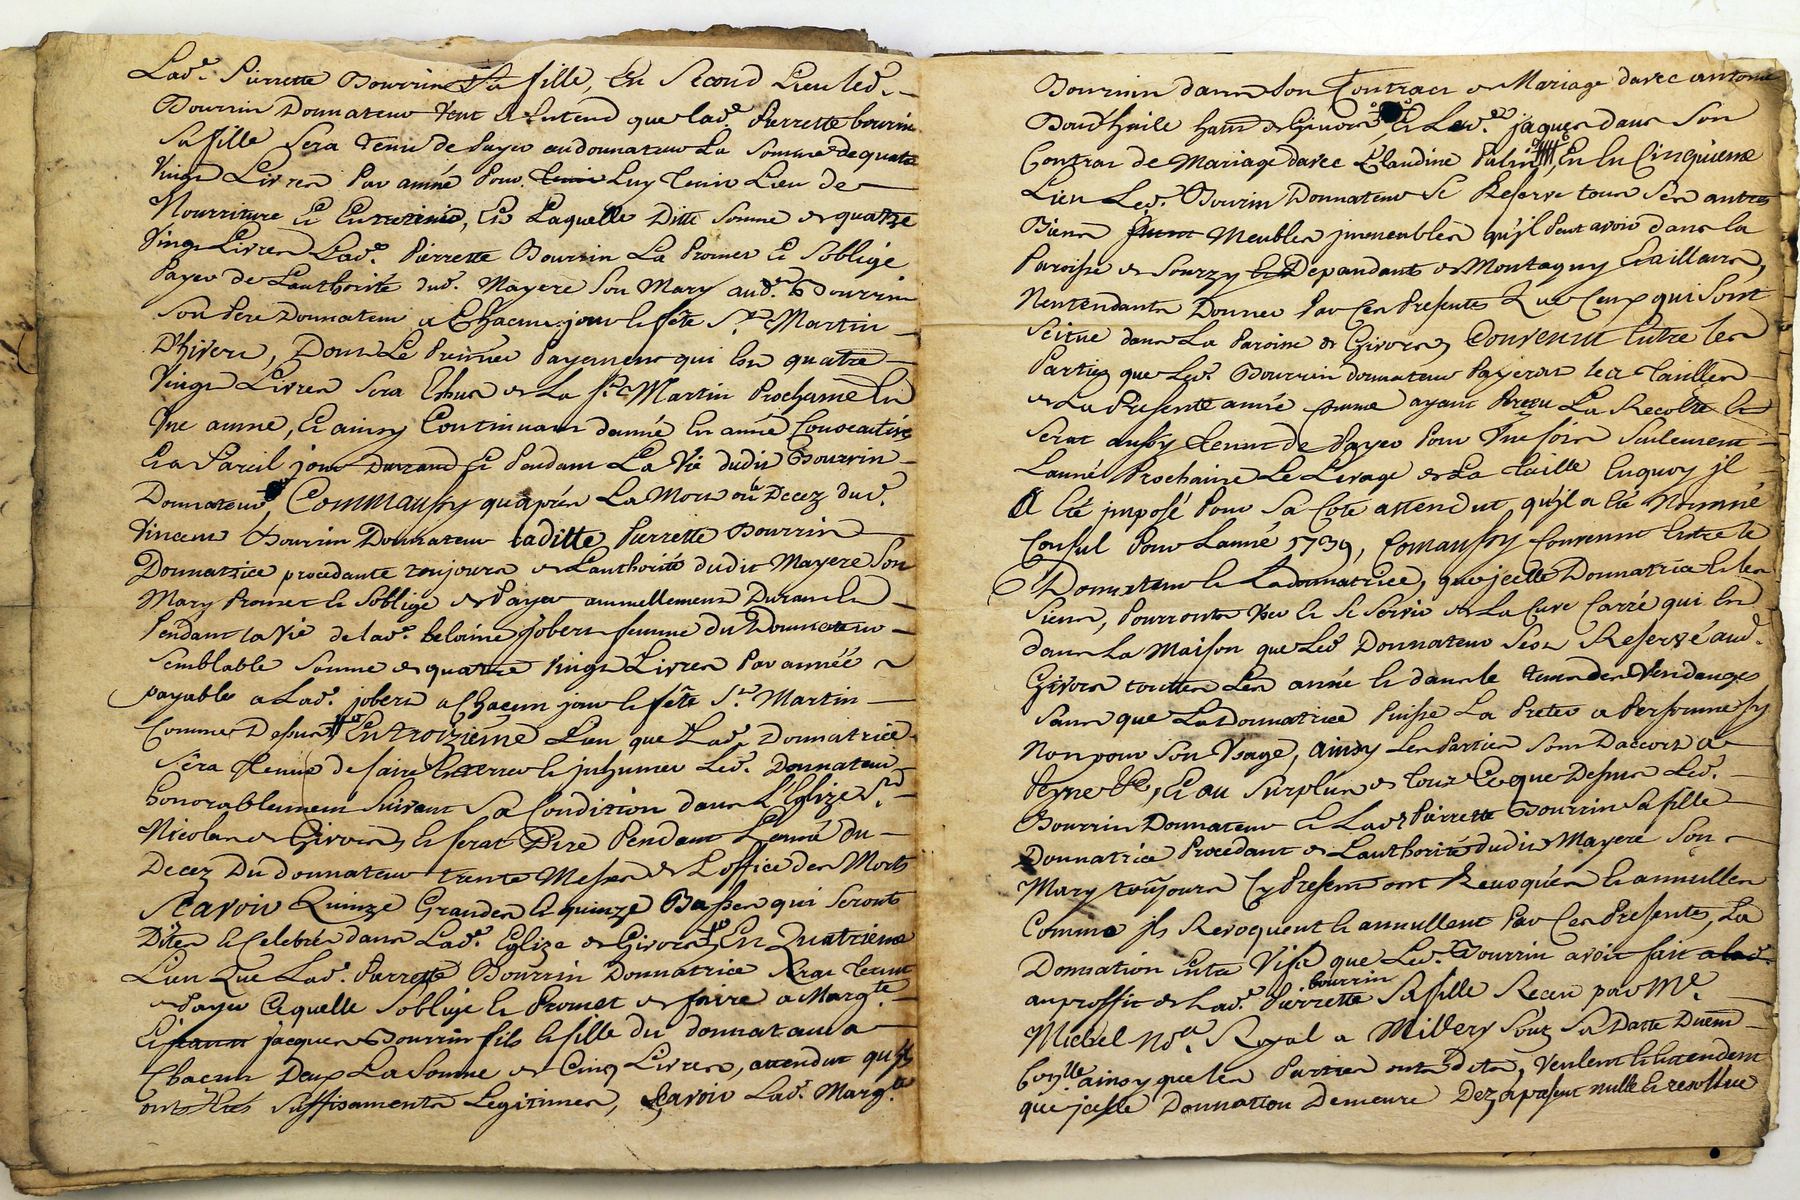 Lad.e Pierrette Bourrin Sa fille, En Second Lieu led.
Bourrin Donnateur Veut et Entend que lad.e Pierrette bourrin
Sa fille Sera Tenue de Payer au donnateur La Somme de quatre
Vingt Livres Par année Pour Luy Tenir Lieu de
Nourriture Et Entretiens, Et Laquelle Ditte Somme de quatre
Vingt Livres Lad.e Pierrette Bourrin La Promet Et Soblige
Payer de Lauthorité dud. Mayere Son Mary aud. Bourrin
Son Pere Donnateur a Chacun jour et fête S.t Martin
D'hivert, Dont Le Premier Payement qui Est quatre
Vingt Livres Sera Eshus de La S.t Martin Prochaine En
Une année, Et ainsy Continuant dannée En année Consecutive
Et a Pareil jour Durand Et Pendant La Vie dudit Bourrin
Donnateur, Commaussy quaprés La Mort ou Decez dud.
Vincent Bourrin Donnateur laditte Pierrette Bourrin
Donnatrice procedante toujours de Lauthorité dudit Mayere Son
Mary Promet et Soblige de Payer annuellement Durant et
Pendant La Vie de lad.e heleine jobert femme du Donnateur
Semblable Somme de quatre Vingt Livres Par année
payable a Lad.e jobert a Chacun jour et fête S.t Martin
Comme Dessus Entroizieme Lieu que Lad.e Donnatrice
Sera Tenue de faire Enterrer et juhumer Led. Donnateur
honorablement Suivant Sa Condition dans L'Eglize S.t
Nicolas de Givors, et ferat Dire Pendant Lanné du
Decez Du donnateur trente Messes de Loffice des Morts
Scavoir Quinze Grandes et quinze Basses qui Seronts
Dites et Celebrés dans Lad.e Eglize de Givors, En Quatrieme
Lieu Que Lad.e Pierrette Bourrin Donnatrice Serat Tenue
de Payer Cequelle Soblige et Promet de faire a Marg.te
Et jacques Bourrin fils et fille du donnataur a
Chacun Deux La Somme de Cinq Livres, attendut quils
onts Etés Suffisaments Legitimes, Scavoir Lad.e Marg.te
Bourrin dans Son Contract de Mariage davec antoine
Boud'huile hatt de Givors, Et Led. jaques dans Son
Contrat de Mariage davec Claudine Palin, En En Cinquieme
Lieu Led. Bourrin Donnateur Se Reserve tous Ses autres
Biens Meubles jmmeubles qu'jl Peut avoir dans la
Paroisse de Sourzy Dependants de Montagny Et ailliaurs,
Nentendants Donner Par Ces Presentes Que Ceux qui Sont
Scitue dans La Paroisse de Givors, Convenut Entre les
Parties que Led. Bourrin donnateur Payerat les Tailles
de La Presente année Comme ayant Perçu La Recolte et
Serat aussy Tenut de Payer Pour Une fois Seulement
Lanné Prochaine Le Levage de La Taille Enquoy jl
A Eté jmposé Pour Sa Cote attendut qu'jl a Eté Nommé
Consul Pour Lanné 1739, Comaussy Convenut Entre le
Donnateur et Ladonnatrice, que jcelle Donnatrice et les
Siens, Pourronts User et Se Servir de La Cuve Carré qui Est
dans La Maison que Led. Donnateur Sest Reservé aud.
Givors touttes Les année et dans le tems des Vendanges
Sans que Ladonnatrice Puisse La Preter a Personne Sy
Non pour Son Usage, ainsy Les Parties Sont Daccorts a
Peyne &c, Et au Surplus de Tout Ceque Dessus Led.
Bourrin Donnateur Et Lad.e Pierrette Bourrin Sa fille
Donnatrice Procedant de Lauthorité dudit Mayere Son
Mary toujours Cy Present ont Revoquér et annuller
Comme jls Revoquent et annullent Par Ces Presentes, La
Donnation Entre Vifs que Led. Bourrin avoit fait
au proffit de Lad.e Pierrette bourrin Sa fille Receu par M.e
Michel No.re Royal a Millery Sous Sa Datte Duem
ainsy que les Parties onts Dits, Veulent Et Entendent
que jcelle Donnation Demeure Dez a present nulle Et resollue